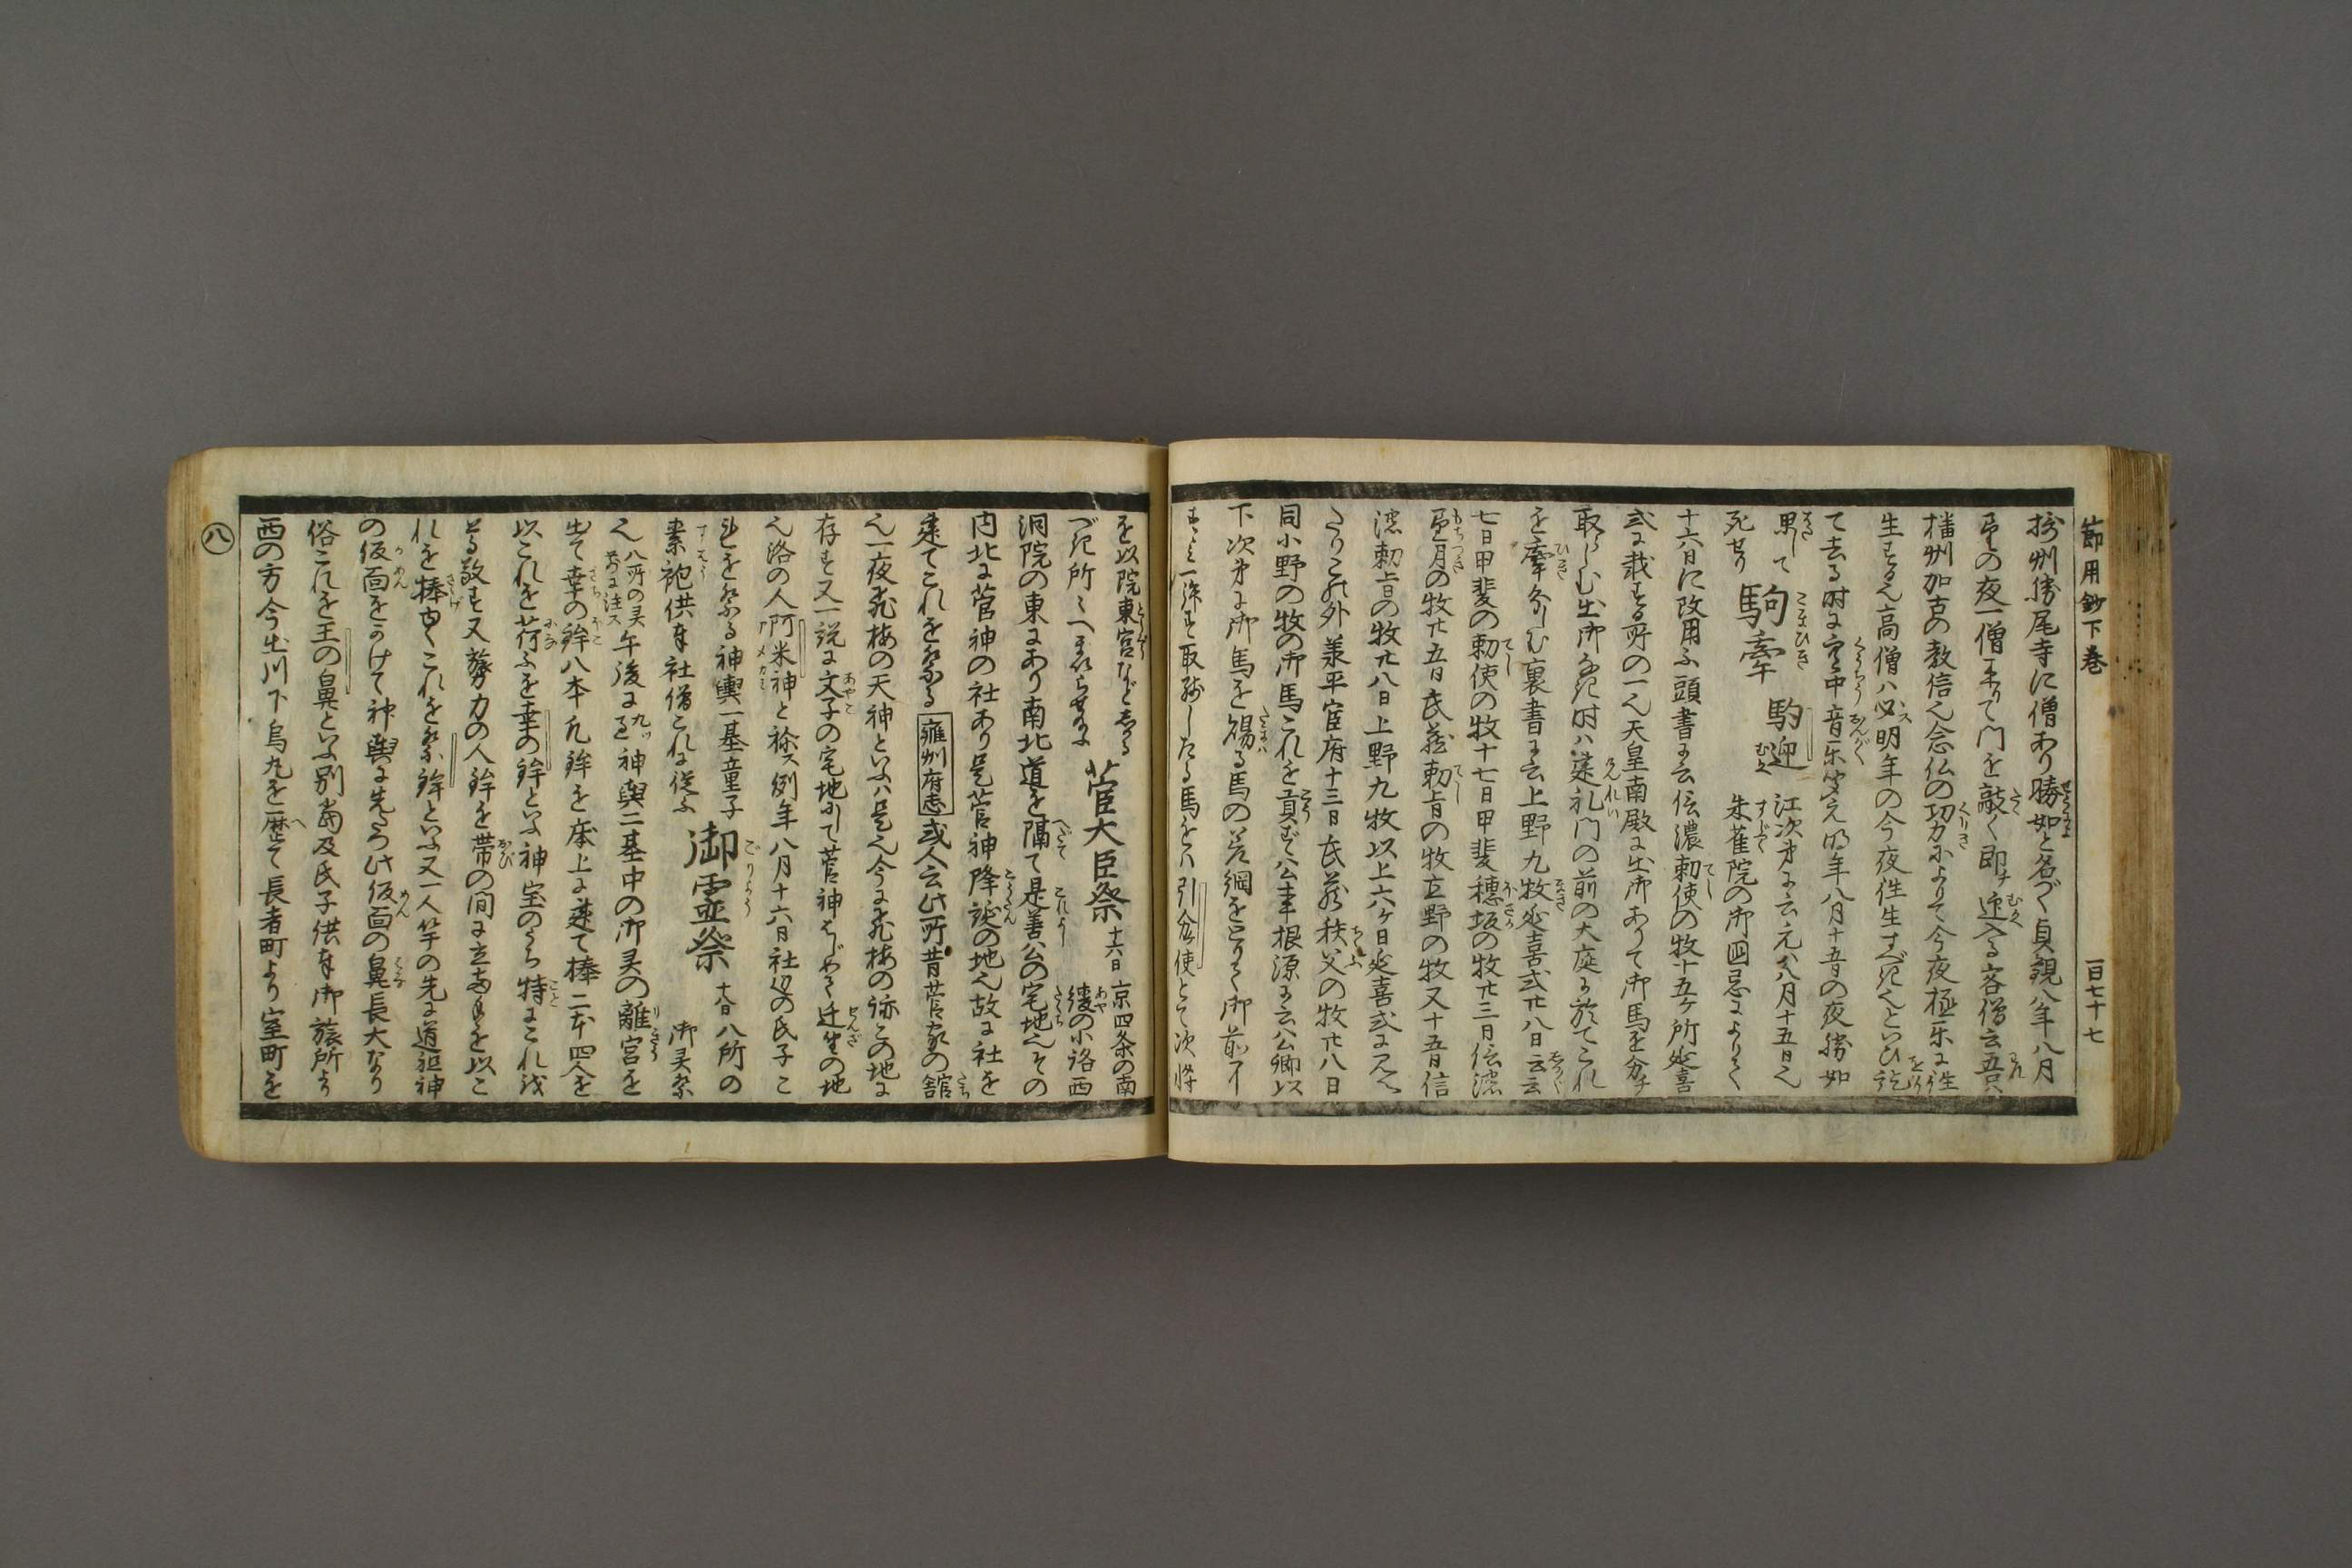 節用鈔下巻
一百七十七
摂州勝尾寺に僧あり勝如と名づく貞観八年八月
の夜一僧来りて門を敲く即チ迎入る客僧云吾ハ
播州加古の教信也念仏の功力によりて今夜極楽に往
生する也高僧ハ必ス明年の今夜往生すべき也といひ訖
て去る時に空中音楽聞え明年八月十五日の夜勝如
果して
死せり
駒牽
駒迎
江次第に云元八月十五日也
朱雀院の御国忌によりて
十六日に改用ふ頭書に云信濃勅使の牧十五ケ所延喜
式に載する所の一也天皇南殿に出御ありて御馬を分チ
取らしむ出御なき時ハ建礼門の前の大庭に於てこれ
を牽分しむ裏書に云上野九牧延喜式廿八日云云
七日甲斐の勅使の牧十七日甲斐穂坂の牧廿三日信濃
望月の牧廿五日武蔵勅旨の牧立野の牧又十五日信
濃勅旨の牧廿八日上野九牧以上六ケ日延喜式に見ゆ
たりこの外兼平官府十三日武蔵秩父の牧廿八日
同小野の牧の御馬これを貢ず公事根源に云公卿以
下次第に御馬を賜る馬の差綱をとりて御前にて
引分使とて次将
を以院東宮など
づき所々へまいらせ
菅大臣祭
十六日
京四条の南
綾の小路西
洞院の東にあり南北道を隔て是善公の宅地也その
内北に菅神の社あり是菅神降誕の地也故に社を
建てこれを祭る 雍州府志 或人云此所昔菅家の館
也一夜飛梅の天神といふハ是也今に飛梅の跡この地に
存す又一説に文子の宅地にて菅神はじめて遷坐の地
也洛の人阿米神と称ス例年八月十六日社辺の氏子こ
れを祭る神輿一基童子
素袍供奉社僧これに従ふ
御霊祭
十八日
八所の
御灵祭
也
八所の灵
前に注ス
午後に
九ツ
神輿二基中の御灵の離宮を
出て幸の鉾八本凡鉾を床上に建て棒二本四人を
以これを荷ふを幸の鉾といふ神宝のうち特にこれ
る敬す又力の人鉾を帯の間に立両手を以こ
れを捧ゆくこれを祭鉾といふ又一人竿の先に道祖神
の仮面をかけて神輿に先だつ此仮面の鼻長大なり
俗これを王の鼻といふ別当及氏子供奉御旅所より
西の方今出川下烏丸を歴て長者町より室町を
八